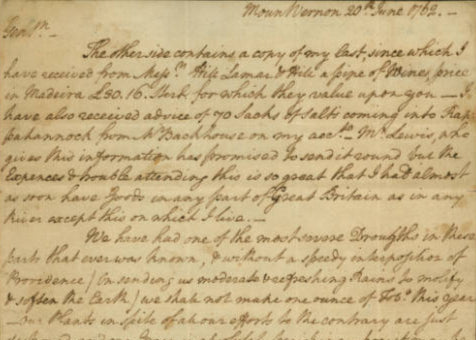 Mount Vernon 20th June 1762.—
Gentn.
The other side contains a copy of my last, since which I
have received from Messrs. Hill Lamar & Hill a pipe of Wines price
in Madeira £30.16 Sterl. for which they value upon you — I
have also received advice of 70 Sacks of Salts coming into Rap-
pahannock from Mr. Backhouse on my acct. Mr. Lewis, who
gives this information has promised to send it round but the
Expences & trouble attending this is so great that I had almost
as soon have Goods in any part of Great Britain as in any
River except this on which I live.—
We have had one of the most severe Droughts in these
parts that ever was known, & without a speedy interposition of
Providence (in sending us moderate & refreshing Rains to molify
& soften the Earth) we shall not make one ounce of Tobo. this year
— Our Plants in spite of all our efforts to the contrary are just